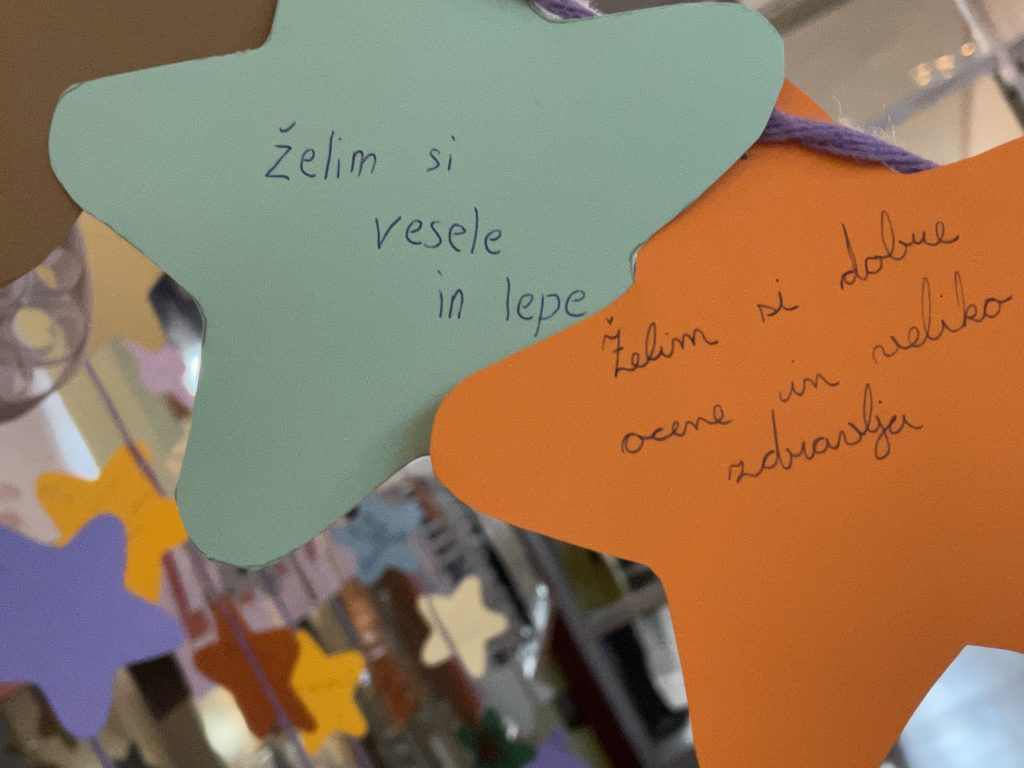 Želim si
vesele
in lepe
Želim si dobre
ocene in veliko
zdravlja